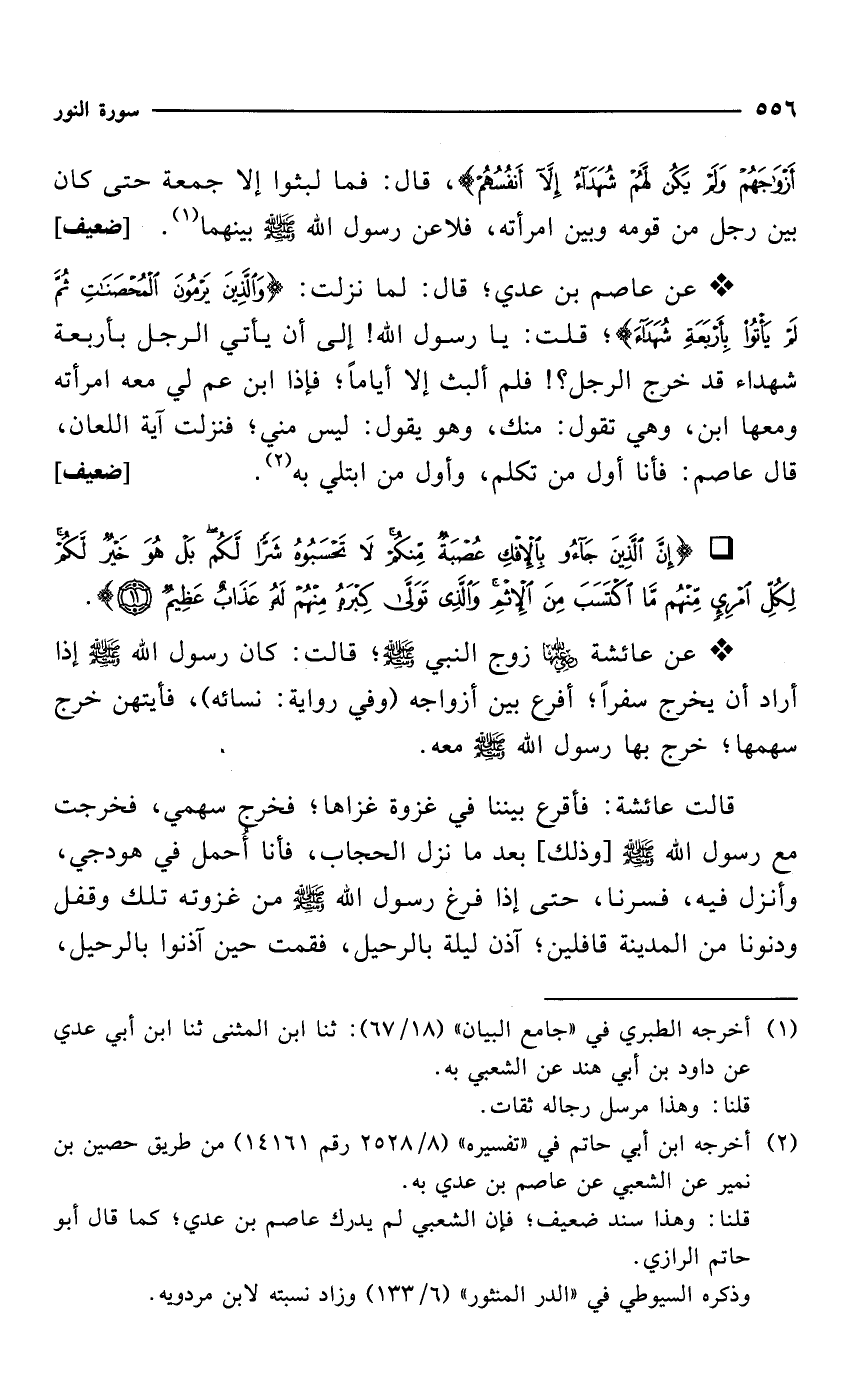 ٥٥٦ سورة النور
أَزْوَٰجَهُمْ وَلَمْ يَكُن لَّهُمْ شُهَدَآءُ إِلَّآ أَنفُسُهُمْ﴾، قال: فما لبثوا إلا جمعة حتى كان
بين رجل من قومه وبين امرأته، فلاعن رسول الله ﷺ بينهما(١). [ضعيف]
❖ عن عاصم بن عدي؛ قال: لما نزلت: ﴿وَٱلَّذِينَ يَرْمُونَ ٱلْمُحْصَنَٰتِ ثُمَّ
لَمْ يَأْتُوا۟ بِأَرْبَعَةِ شُهَدَآءَ﴾؛ قلت: يا رسول الله! إلى أن يأتي الرجل بأربعة
شهداء قد خرج الرجل؟! فلم ألبث إلا أياماً؛ فإذا ابن عم لي معه امرأته
ومعها ابن، وهي تقول: منك، وهو يقول: ليس مني؛ فنزلت آية اللعان،
قال عاصم: فأنا أول من تكلم، وأول من ابتلي به(٢). [ضعيف]
❑ ﴿إِنَّ ٱلَّذِينَ جَآءُو بِٱلْإِفْكِ عُصْبَةٌ مِّنكُمْ ۚ لَا تَحْسَبُوهُ شَرًّا لَّكُم ۖ بَلْ هُوَ خَيْرٌ لَّكُمْ ۚ
لِكُلِّ ٱمْرِئٍ مِّنْهُم مَّا ٱكْتَسَبَ مِنَ ٱلْإِثْمِ ۚ وَٱلَّذِى تَوَلَّىٰ كِبْرَهُۥ مِنْهُمْ لَهُۥ عَذَابٌ عَظِيمٌ ۝١١﴾.
❖ عن عائشة رضي الله عنها زوج النبي ﷺ؛ قالت: كان رسول الله ﷺ إذا
أراد أن يخرج سفراً؛ أفرع بين أزواجه (وفي رواية: نسائه)، فأيتهن خرج
سهمها؛ خرج بها رسول الله ﷺ معه.
قالت عائشة: فأقرع بيننا في غزوة غزاها؛ فخرج سهمي، فخرجت
مع رسول الله ﷺ [وذلك] بعد ما نزل الحجاب، فأنا أُحمل في هودجي،
وأنزل فيه، فسرنا، حتى إذا فرغ رسول الله ﷺ من غزوته تلك وقفل
ودنونا من المدينة قافلين؛ آذن ليلة بالرحيل، فقمت حين آذنوا بالرحيل،
(١) أخرجه الطبري في «جامع البيان» (١٨/ ٦٧): ثنا ابن المثنى ثنا ابن أبي عدي
عن داود بن أبي هند عن الشعبي به.
قلنا: وهذا مرسل رجاله ثقات.
(٢) أخرجه ابن أبي حاتم في «تفسيره» (٨/ ٢٥٢٨ رقم ١٤١٦١) من طريق حصين بن
نمير عن الشعبي عن عاصم بن عدي به.
قلنا: وهذا سند ضعيف؛ فإن الشعبي لم يدرك عاصم بن عدي؛ كما قال أبو
حاتم الرازي.
وذكره السيوطي في «الدر المنثور» (٦/ ١٣٣) وزاد نسبته لابن مردويه.